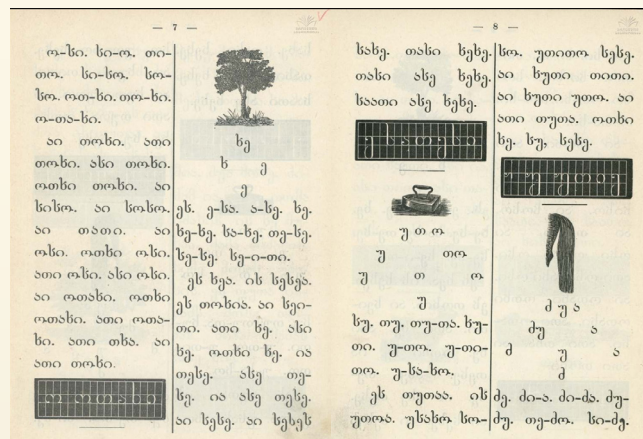 — 7 —
ო-სი. სი-ო. თი-
თო. სი-სო. სო-
სო. ოთ-ხი. თო-ხი.
ო-თა-ხი.
აი თოხი. ათი
თოხი. ასი თოხი.
ოთხი თოხი. აი
სისო. აი სოსო.
აი თათი. აი
ოსი. ოთხი ოსი.
ათი ოსი. ასი ოსი.
აი ოთახი. ოთხი
ოთახი. ათი ოთა-
ხი. ათი თხა. აი
ათი თოხი.
ხე
ხ ე
ე
ეს. ე-სა. ა-სე. ხე.
ხე-ხე. სა-ხე. თე-სე.
ეს ხეა. ის
ეს თოხია. აი
თი. ათი ხე. ასი
ხე. ოთხი ხე. ია
თესე. ასე თე-
სე. ია ასე თესე.
— 8 —
სახე. თასი ხეხე.
თასი ასე ხეხე.
საათი ასე ხეხე.
უ თ ო
უ თო
უ თ ო
უ
სუ. თუ. თუ-თა. ხუ-
თი. უ-თო. უ-თი-
თო. უ-სა-სო.
ეს თუთაა. ის
უთოა. უსასო სო-
სო. უთითო სესე.
აი ხუთი თითი.
აი ხუთი უთო. აი
ათი თუთა. ოთხი
ხე. სუ, სესე.
ძ უ ა
ძუ ა
ძ უ ა
ძ
ძე. ძი-ა. ძი-ძა. ძუ-
ძუ. თე-ძო. სი-ძე.